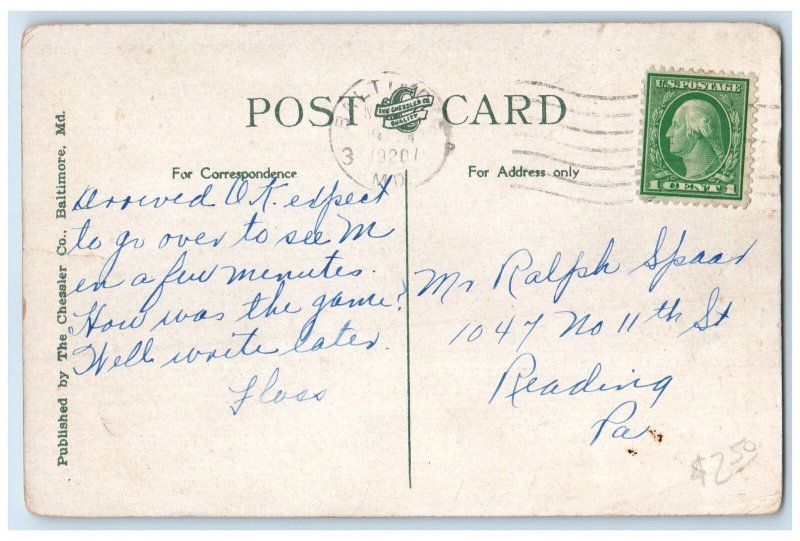 POST CARD
THE CHESSLER CO
QUALITY
BALTIMORE
3 1920
MD.
U.S. POSTAGE
1 CENT 1
For Correspondence
For Address only
Published by The Chessler Co., Baltimore, Md.
Arrived O.K. expect
to go over to see M
in a few minutes.
How was the game?
Will write later.
Floss
Mr Ralph Spaar
1047 No 11th St
Reading
Pa
$2.50